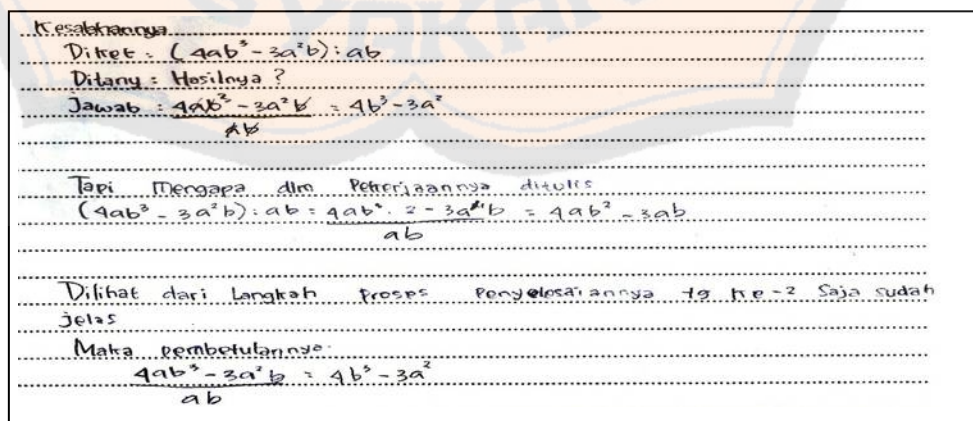 Kesalahannya
Diket : (4ab³ - 3a²b) : ab
Ditany : Hasilnya ?
Jawab : 4ab³ - 3a²b = 4b³ - 3a²
ab
Tapi Mengapa dlm Pekerjaannya ditulis
(4ab³ - 3a²b) : ab = 4ab³ · 2 - 3a²·¹b = 4ab² - 3ab
ab
Dilihat dari Langkah Proses Penyelesaiannya yg ke-2 Saja sudah
jelas
Maka pembetulannya.
4ab³ - 3a²b = 4b³ - 3a²
ab